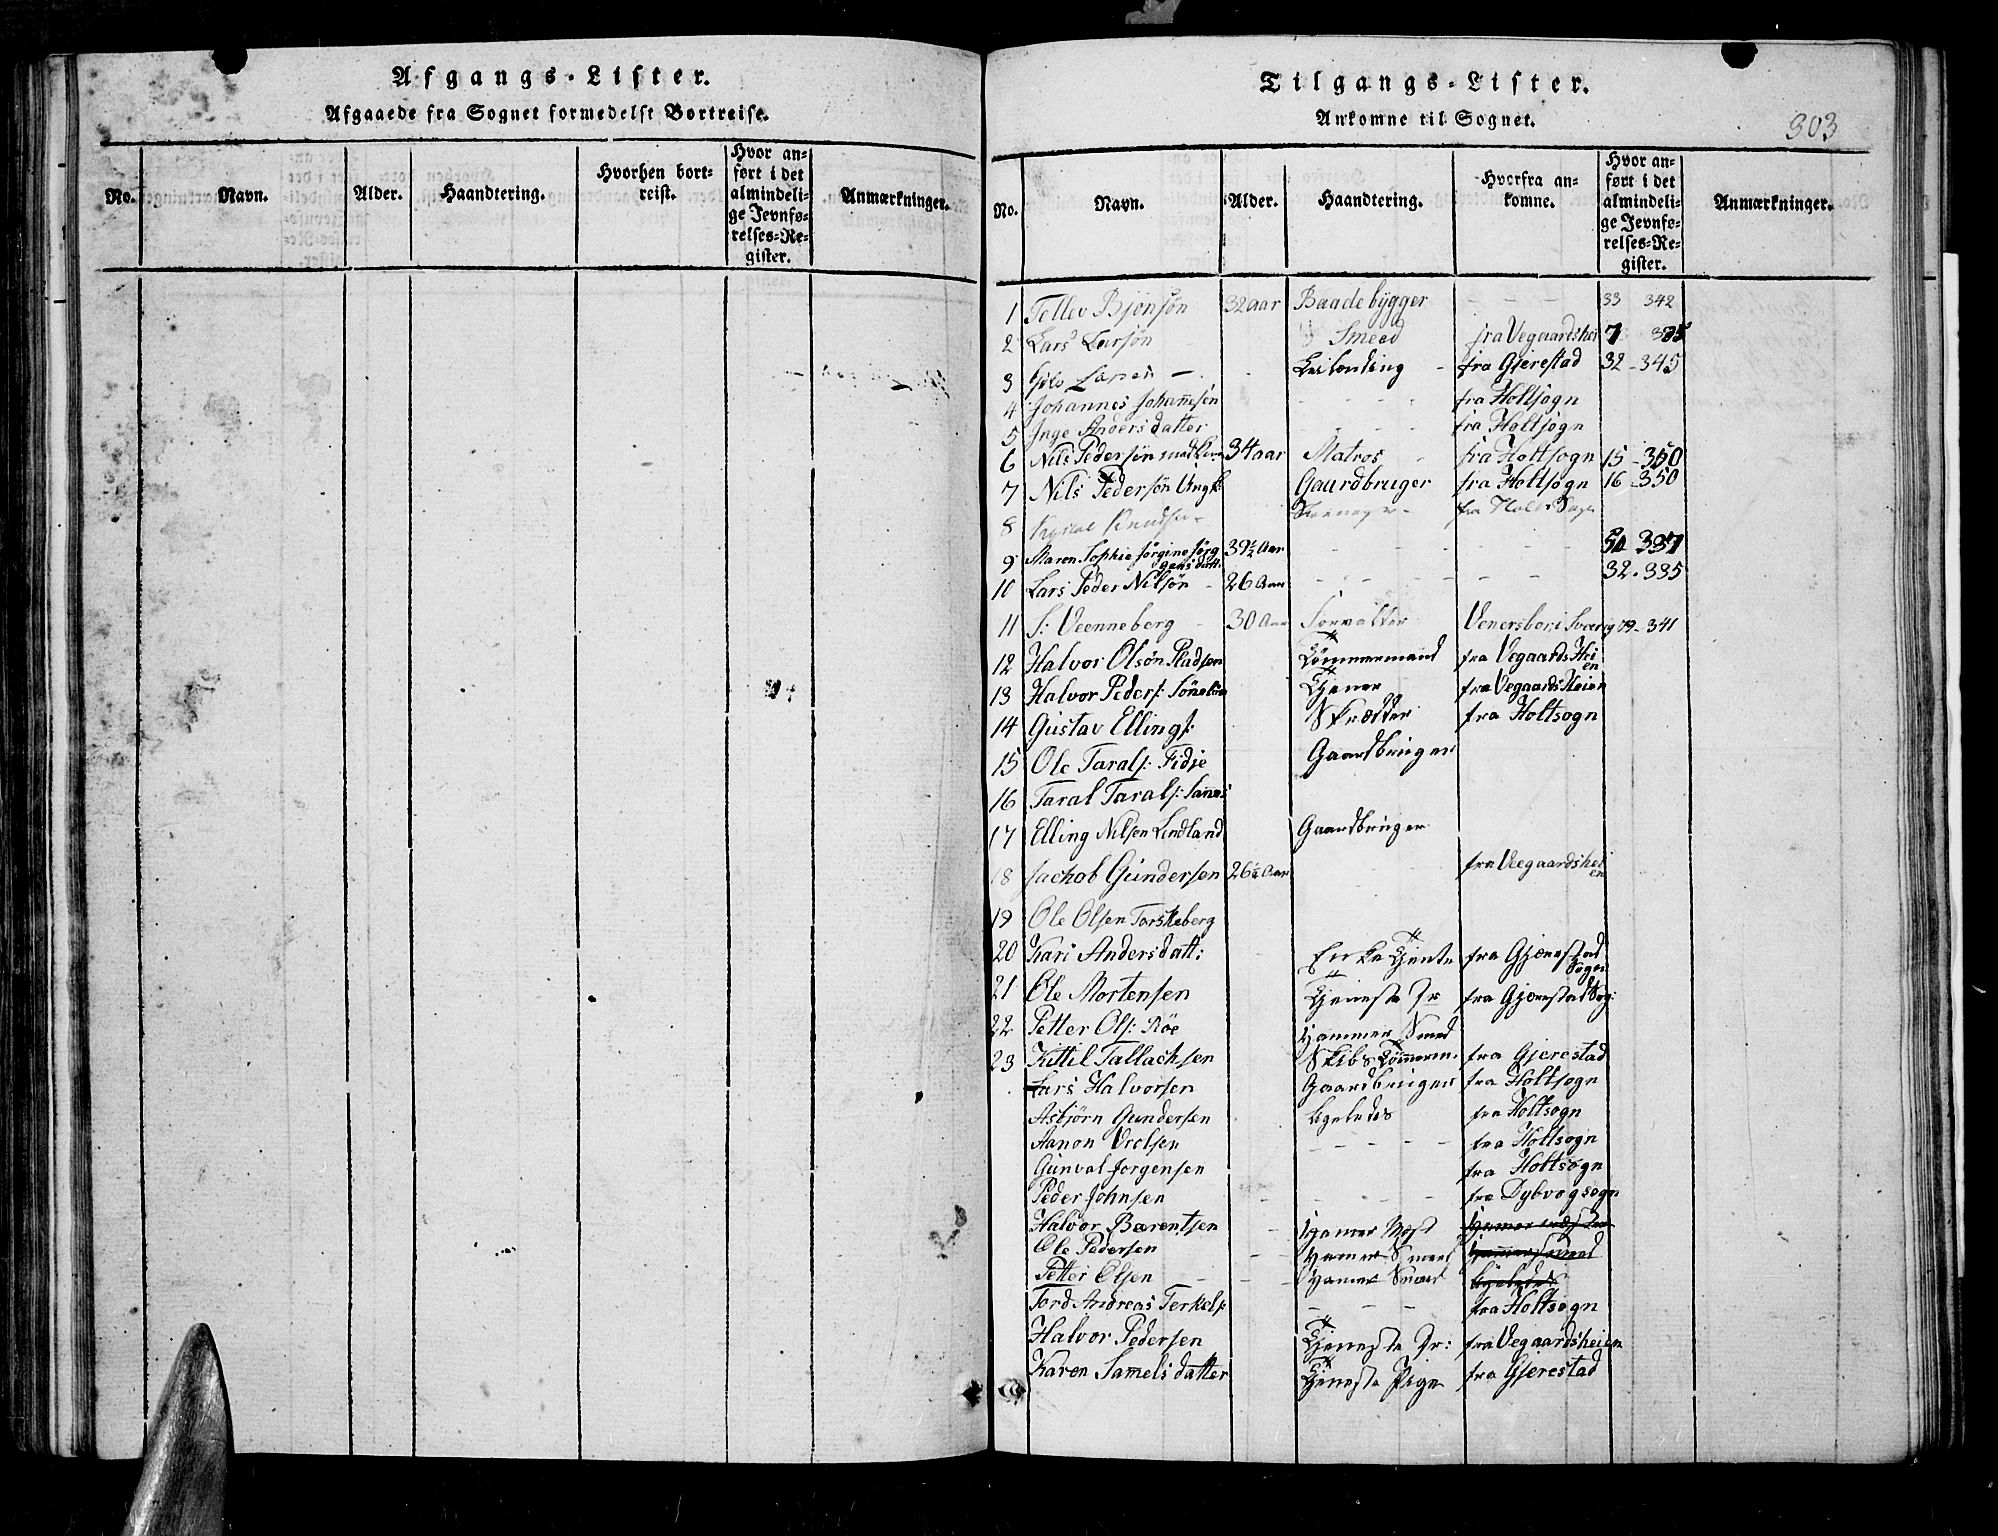 Afgangs-Lister.
Afgaaede fra Sognet formedelst Bortreise.
No. Navn. Alder. Haandtering. Hvorhen bortreist. Hvor anført i det almindelige Jevnførelses-Register. Anmærkninger.
Tilgangs-Lister.
Ankomne til Sognet.
303
No. Navn. Alder. Haandtering. Hvorfra ankomne. Hvor anført i det almindelige Jevnførelses-Register. Anmærkninger.
1 Tellev Bjönsön 32 aar Baadebygger - - - 33 342
2 Lars Larsön Smeed fra Vegaardshei 7
3 Lassen - Leilending - fra Gjerestad 32 - 345
4 Johannes Johannesen - - - fra Holtsogn
5 Inge Andersdatter - - - fra Holtsogn
6 Nils Pedersön med 34 aar Matros - fra Holtsogn 15 - 350
7 Nils Pedersön Ungk: Gaardbruger fra Holtsogn 16 - 350
8 Knudsen - fra Holt Sogn
9 Maren Sophie Jørgine Jørgensdatt: 39½ Aar - - - 337
10 Lars Peder Nilsön - 26 Aar - - - 32 - 335
11 S: Veenneberg - 30 Aar Forvalter Venersbor i Sverig 79 - 341
12 Halvor Olsön Pladsen Tömmermand fra Vegaards Heien
13 Halvor Peders: Tjener fra Vegaards Heien
14 Gustav Ellings: Skrædder fra Holtsogn
15 Ole Tarals: Fidje Gaardbruger
16 Taral Tarals: Sanes
17 Elling Nilsen Lindland Gaardbruger
18 Jachob Gundersen 26½ Aar - fra Veegaardsheien
19 Ole Olsen Torskeberg
20 Kari Andersdatt: Enke Tjente fra Gjerestad Sogn
21 Ole Mortensen Tjeneste Dr fra Gjerestad Sog:
22 Petter Ols: Röe Hammer Smed
23 Kittil Tallachsen Skibs Tömmerm. fra Gjerestad
Lars Halvorsen Gaardbruger fra Holtsogn
Asbjörn Gundersen ligeledes fra Holtsogn
Aanon Vrolsen - - - fra Holtsogn
Gunval Jorgensen fra Holtsogn
Peder Johnsen - - - fra Dybvogsogn
Halvor Bærentsen - Hamer Mest
Ole Pedersen - Hamer Smed Hammersmed
Petter Olsen - - Hamer Smed ligeledes
Tord Andreas Terkels: - - - fra Holtsogn
Halvor Pedersen Tjeneste Dr: fra Vegaardsheien
Karen Samelsdatter Tjeneste Pige fra Gjerestad